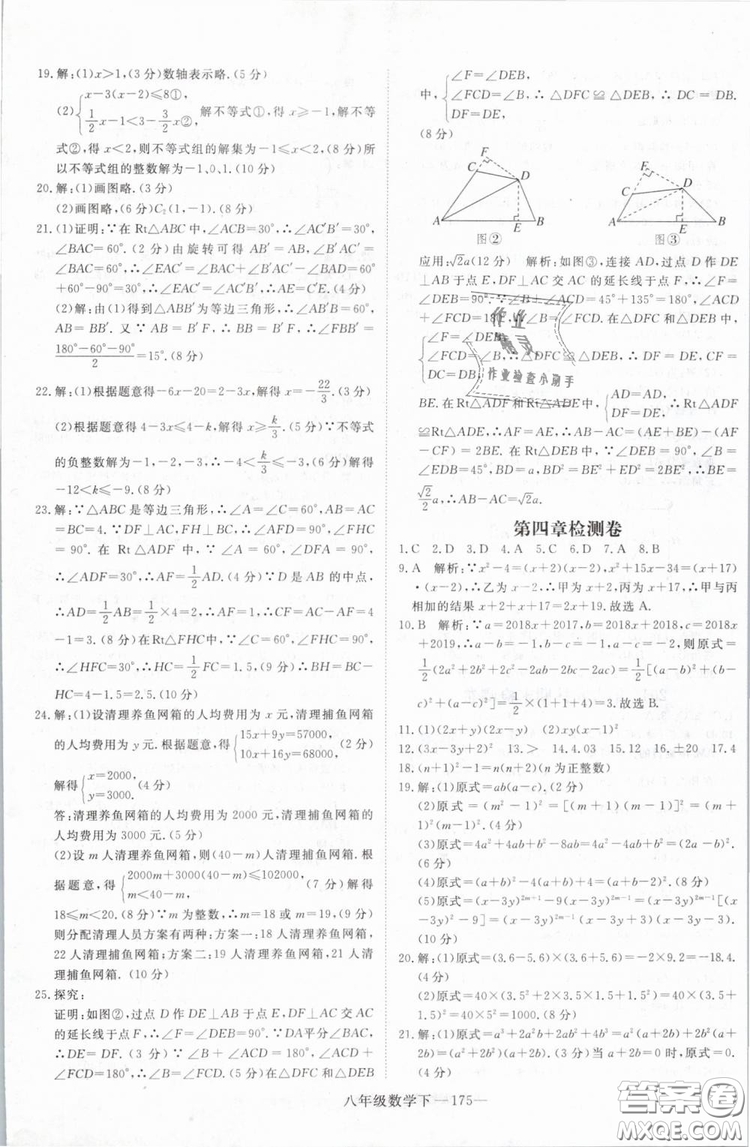 19.解:(1)x>1,(3分)数轴表示略.(5分)
(2){x-3(x-2)≤8①, 1/2x-1<3-3/2x②, 解不等式①,得x≥-1,解不等
式②,得x<2,则不等式组的解集为-1≤x<2,(8分)所
以不等式组的整数解为-1、0、1.(10分)
20.解:(1)画图略.(3分)
(2)画图略,(6分)C₂(1,-1).(8分)
21.(1)证明:∵在Rt△ABC中,∠ACB=30°,∴∠AC′B′=30°,
∠BAC=60°.(2分)由旋转可得AB′=AB,∠B′AC′=
∠BAC=60°,∴∠EAC′=∠BAC′-∠BAC=∠BAB′+
∠B′AC′-∠BAC=∠B′AC′+∠B′AC′-∠BAD=60°
+60°-90°=30°,∴∠EAC′=∠AC′B′,∴AE=C′E.(4分)
(2)解:由(1)得到△ABB′为等边三角形,∴∠AB′B=60°,
AB=BB′.又∵AB=B′F,∴BB′=B′F,∴∠FBB′=
(180°-60°-90°)/2=15°.(8分)
22.解:(1)根据题意得-6x-20=2-3x,解得x=-22/3.(3分)
(2)根据题意得4-3x≤4-k,解得x≥k/3.(5分)∵不等式
的负整数解为-1,-2,-3,∴-4<k/3≤-3.(6分)解得
-12<k≤-9.(8分)
23.解:∵△ABC是等边三角形,∴∠A=∠C=60°,AB=AC
=BC=4.∵DF⊥AC,FH⊥BC,∴∠AFD=90°,∠FHC
=90°.在Rt△ADF中,∵∠A=60°,∠AFD=90°,
∴∠ADF=30°,∴AF=1/2AD.(4分)∵D是AB的中点,
∴AD=1/2AB=1/2×4=2,∴AF=1,∴CF=AC-AF=4
-1=3.(8分)在Rt△FHC中,∵∠C=60°,∠FHC=90°,
∴∠HFC=30°,∴HC=1/2FC=1.5.(9分)∴BH=BC-
HC=4-1.5=2.5.(10分)
24.解:(1)设清理养鱼网箱的人均费用为x元,清理捕鱼网箱
的人均费用为y元.根据题意得{15x+9y=57000, 10x+16y=68000,(2分)
解得{x=2000, y=3000.(4分)
答:清理养鱼网箱的人均费用为2000元,清理捕鱼网箱的
人均费用为3000元.(5分)
(2)设m人清理养鱼网箱,则(40-m)人清理捕鱼网箱.根
据题意得{2000m+3000(40-m)≤102000, m<40-m,(7分)解得
18≤m<20.(8分)∵m为整数,∴m=18或m=19,(9分)
则分配清理人员方案有两种:方案一:18人清理养鱼网箱,
22人清理捕鱼网箱;方案二:19人清理养鱼网箱,21人清
理捕鱼网箱.(10分)
25.探究:
证明:如图②,过点D作DE⊥AB于点E,DF⊥AC交AC
的延长线于点F,∴∠F=∠DEB=90°.∵DA平分∠BAC,
∴DE=DF.(3分)∵∠B+∠ACD=180°,∠ACD+
∠FCD=180°,∴∠B=∠FCD.(6分)在△DFC和△DEB
中,{∠F=∠DEB, ∠FCD=∠B, DF=DE,∴△DFC≌△DEB,∴DC=DB.
(8分)
F C D A E B
图②
F C D A E B
图③
应用:√2a(12分) 解析:如图③,连接AD,过点D作DE
⊥AB于点E,DF⊥AC交AC的延长线于点F,∴∠F=
∠DEB=90°.∵∠B+∠ACD=45°+135°=180°,∠ACD+
∠FCD=180°,∴∠B=∠FCD.在△DFC和△DEB中,
{∠F=∠DEB, ∠FCD=∠B, DC=DB,∴△DFC≌△DEB,∴DF=DE,CF=
BE.在Rt△ADF和Rt△ADE中,{AD=AD, DF=DE,∴Rt△ADF
≌Rt△ADE,∴AF=AE,∴AB-AC=(AE+BE)-(AF
-CF)=2BE.在Rt△BDE中,∵∠DEB=90°,∠B=
∠EDB=45°,BD=a,∴BD²=BE²+DE²=2BE²,∴BE=
√2/2a,∴AB-AC=√2a.
第四章检测卷
1.C 2.D 3.D 4.A 5.C 6.D 7.A 8.B
9.A 解析:∵x²-4=(x+2)(x-2),x²+15x-34=(x+17)
·(x-2),∴乙为x-2,∴甲为x+2,丙为x+17,∴甲与丙
相加的结果x+2+x+17=2x+19.故选A.
10.B 解析:∵a=2018x+2017,b=2018x+2018,c=2018x
+2019,∴a-b=-1,b-c=-1,a-c=-2,则原式=
1/2(2a²+2b²+2c²-2ab-2bc-2ac)=1/2[(a-b)²+(b-
c)²+(a-c)²]=1/2×(1+1+4)=3.故选B.
11.(1)(2x+y)(2x-y) (2)xy(x-1)²
12.(3x-3y+2)² 13.> 14.4.03 15.12 16.±20 17.4
18.(n+1)²-1=n²+2n(n为正整数)
19.解:(1)原式=ab(a-c).(2分)
(2)原式=(m²-1)²=[(m+1)(m-1)]²=(m+1)²(m
-1)².(4分)
(3)原式=4a²+4ab+b²-8ab=4a²-4ab+b²=(2a-b)².
(6分)
(4)原式=(a+b)²-4=(a+b+2)(a+b-2).(8分)
(5)原式=(x-3y)²ᵐ⁻¹-9(x-3y)²ᵐ⁻¹=(x-3y)²ᵐ⁻¹[(x
-3y)²-9]=(x-3y)²ᵐ⁻¹(x-3y+3)(x-3y-3).
(10分)
20.解:(1)原式=(3.6-5.6)×(3.6+5.6)=-2×9.2=-18.4.
(4分)
(2)原式=40×(3.5²+2×3.5×1.5+1.5²)=40×(3.5+
1.5)²=40×5²=1000.(8分)
21.解:(1)原式=a³+2a²b+2ab²+4b³=a²(a+2b)+2b²(a+
2b)=(a+2b)(a²+2b²).(3分)当a+2b=0时,原式=0.
(4分)
作业
精灵
作业检查小助手
答案圈
MXQE.COM
八年级数学下—175—